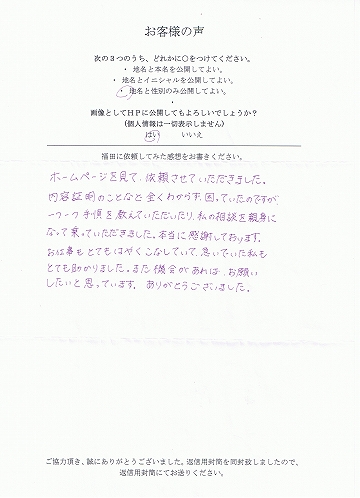 お客様の声
次の３つのうち、どれかに〇をつけてください。
・ 地名と本名を公開してよい。
・ 地名とイニシャルを公開してよい。
・ 地名と性別のみ公開してよい。
・
画像としてＨＰに公開してもよろしいでしょうか？
(個人情報は一切表示しません)
はい　いいえ
福田に依頼してみた感想をお書きください。
ホームページを見て、依頼させていただきました。
内容証明のことなど全くわからず、困っていたのですが
一つ一つ手順を教えていただいたり、私の相談を親身に
なって乗っていただきました。本当に感謝しております。
お仕事もとてもはやくこなしていて、急いでいた私も
とても助かりました。また機会があれば、お願い
したいと思っています。ありがとうございました。
ご協力頂き、誠にありがとうございました。返信用封筒を同封致しましたので、
返信用封筒にてお送りください。